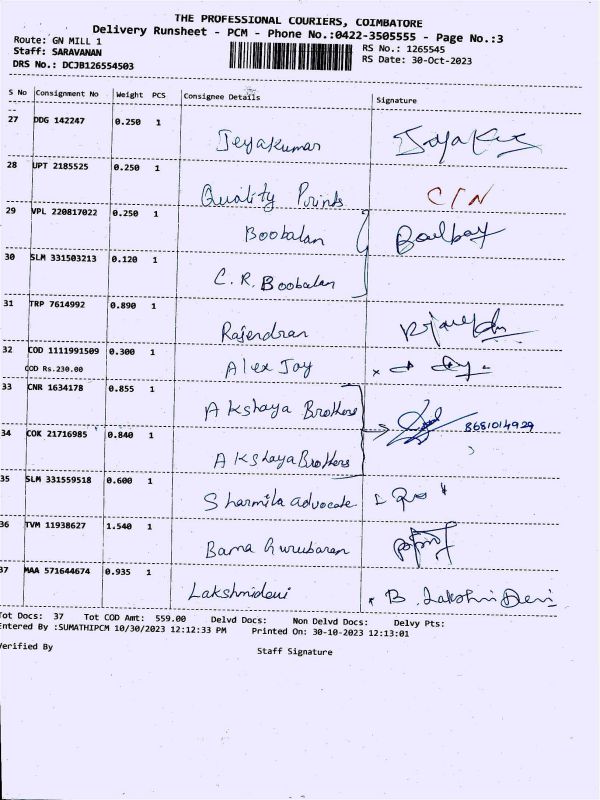 THE PROFESSIONAL COURIERS, COIMBATORE
Delivery Runsheet - PCM - Phone No.:0422-3505555 - Page No.:3
Route: GN MILL 1
RS No.: 1265545
Staff: SARAVANAN
RS Date: 30-Oct-2023
DRS No.: DCJB126554503
S No Consignment No Weight PCS Consignee Details Signature
27 DDG 142247 0.250 1
Jeyakumar
28 UPT 2185525 0.250 1
Quality Prints C/N
29 VPL 220817022 0.250 1
Boobalan
30 SLM 331503213 0.120 1
C.R. Boobalan
31 TRP 7614992 0.890 1
Rajendran
32 COD 1111991509 0.300 1
Alex Jay
COD Rs.230.00
33 CNR 1634178 0.855 1
Akshaya Brothers
8681014929
34 COK 21716985 0.840 1
Akshaya Brothers
35 SLM 331559518 0.600 1
Sharmila advocate
36 TVM 11938627 1.540 1
Bama Gurubaran
37 MAA 571644674 0.935 1
Lakshmidevi B. Lakshmi Devi
Tot Docs: 37 Tot COD Amt: 559.00 Delvd Docs: Non Delvd Docs: Delvy Pts:
Entered By :SUMATHIPCM 10/30/2023 12:12:33 PM Printed On: 30-10-2023 12:13:01
Verified By
Staff Signature